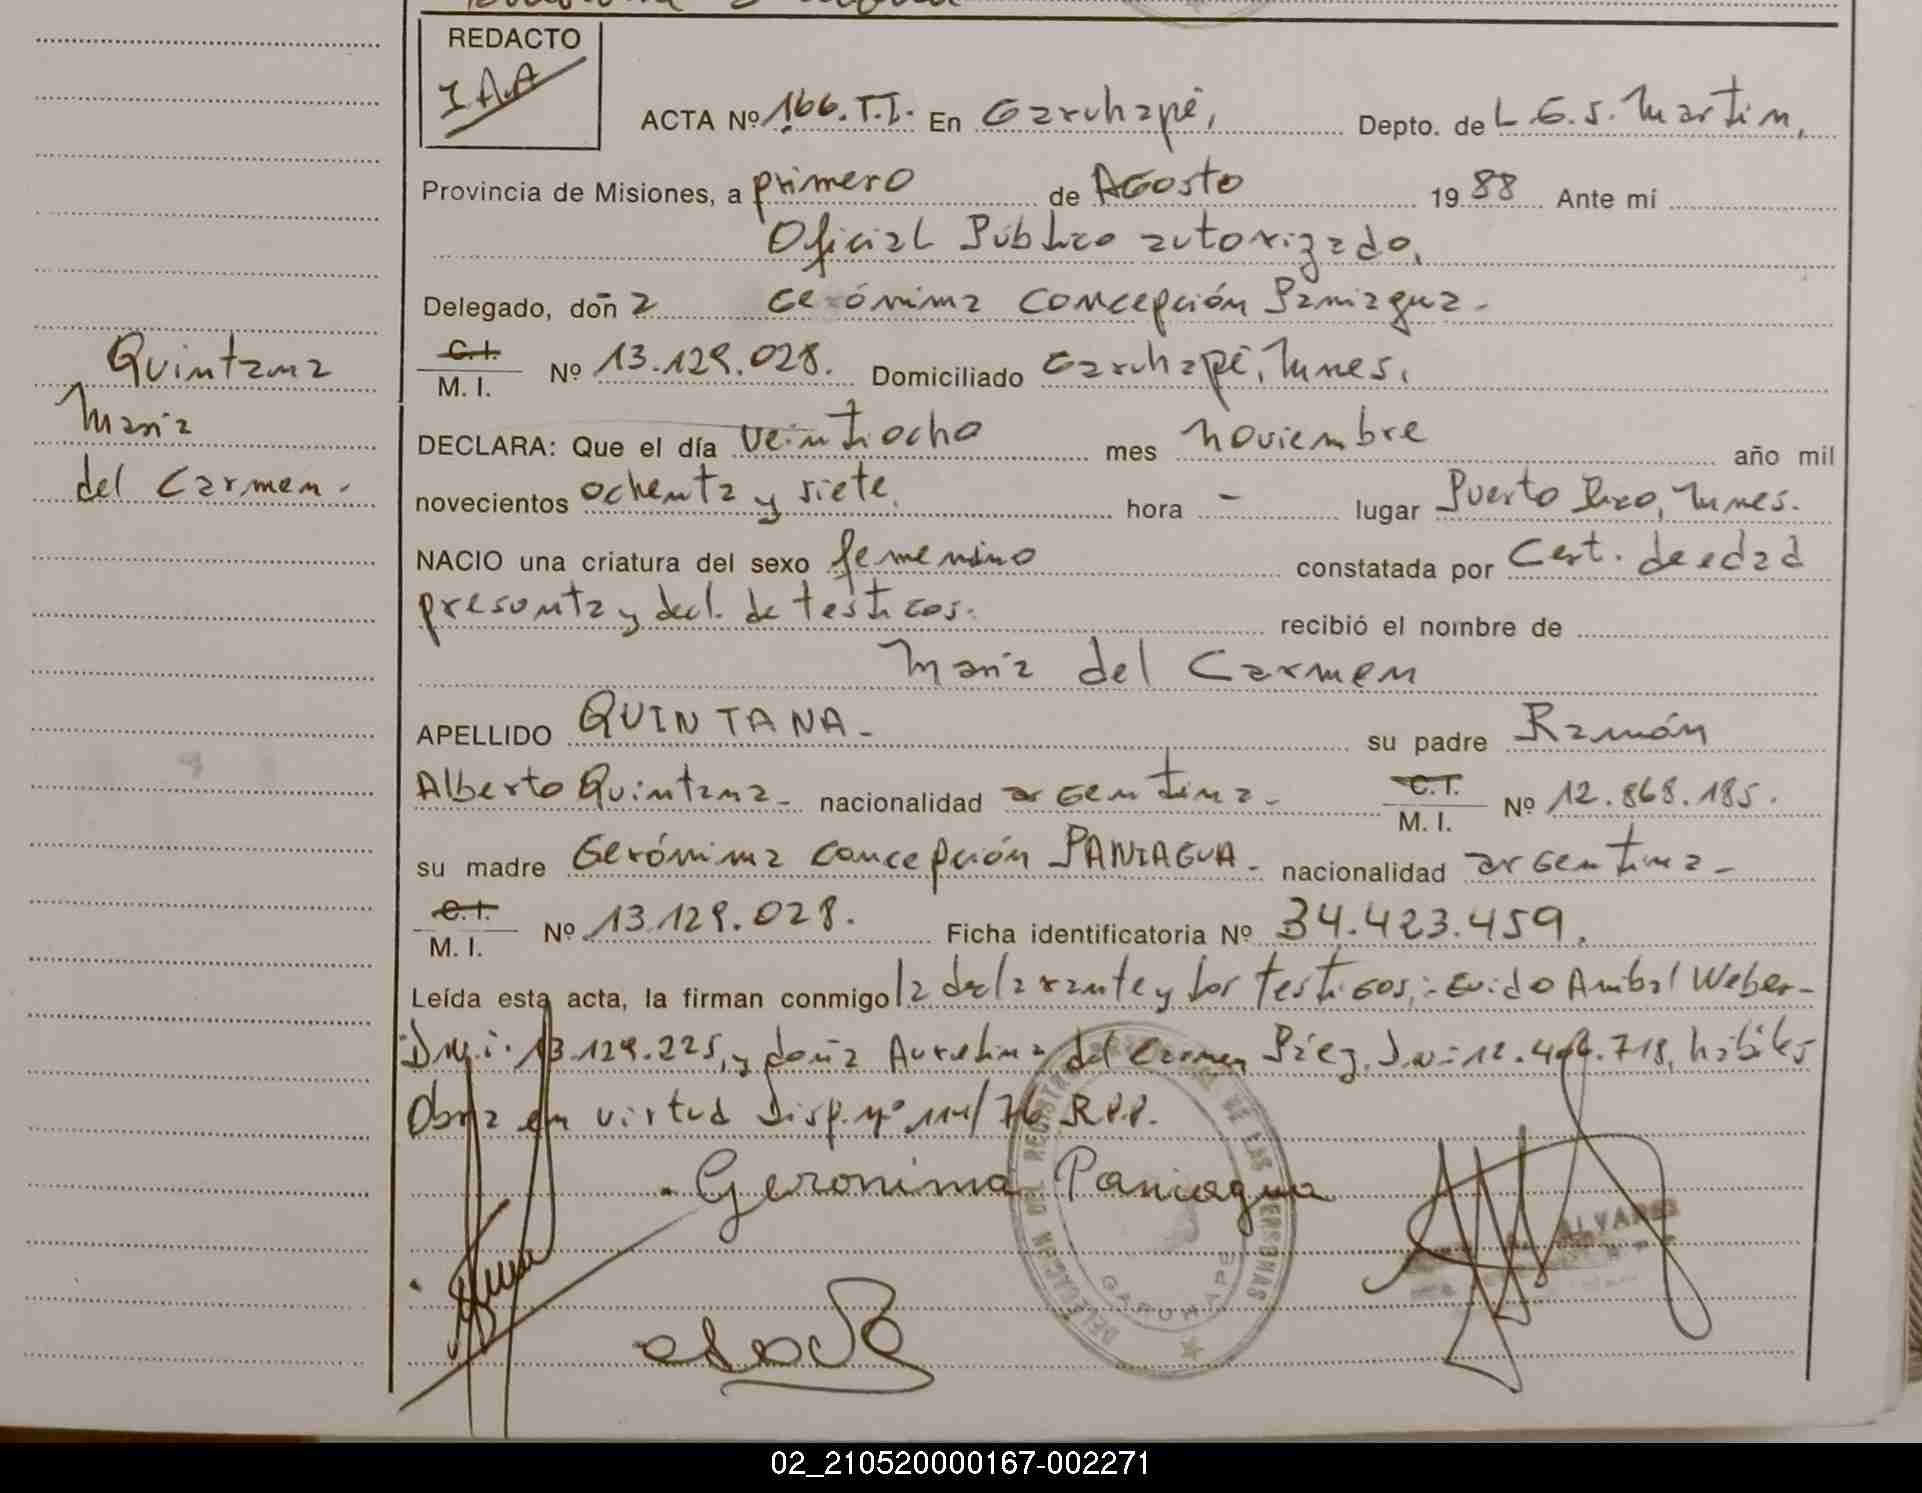 REDACTO
I.A.A
ACTA Nº 166. T.I. En Garuhapé, Depto. de L. G. S. Martín,
Provincia de Misiones, a primero de Agosto 19 88 Ante mí
Oficial Público autorizado,
Delegado, doña Gerónima Concepción Paniagua.
C.I.
M. I. Nº 13.129.028. Domiciliado Garuhapé, Mnes.
Quintana
María
del Carmen.
DECLARA: Que el día veintiocho mes noviembre año mil
novecientos ochenta y siete, hora - lugar Puerto Rico, Mnes.
NACIO una criatura del sexo femenino constatada por Cert. de edad
presunta y decl. de testigos. recibió el nombre de
María del Carmen
APELLIDO QUINTANA. su padre Ramón
Alberto Quintana nacionalidad argentina C.I.
M. I. Nº 12.868.185.
su madre Gerónima Concepción PANIAGUA nacionalidad argentina
C.I.
M. I. Nº 13.129.028. Ficha identificatoria Nº 34.423.459.
Leída esta acta, la firman conmigo la declarante y los testigos: Guido Anibal Weber-
D.N.i. 13.129.225, y doña Aurelina del Carmen Páez, D.N.i 12. .718, hábiles
Obra en virtud Disp. Nº 114/76 R.P.P.
Geronima Paniagua
DELEGACION DEL REGISTRO DE LAS PERSONAS
GARUHAPE
ALVAREZ
02_210520000167-002271